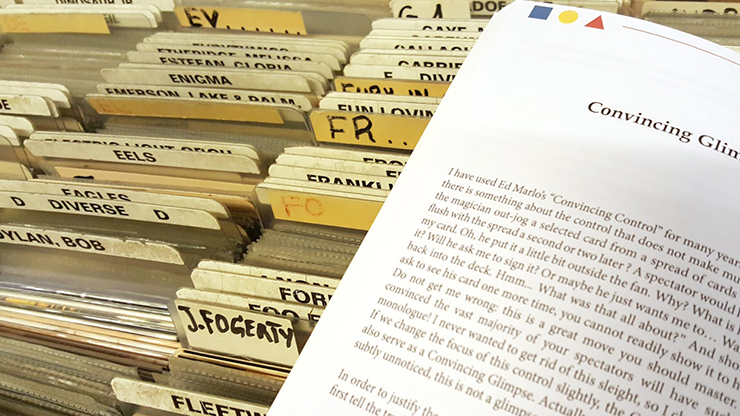 DINOSAUR JR
EV...
ETHERIDGE, MELISSA
ESTEFAN, GLORIA
ENIGMA
EMERSON, LAKE & PALM
EELS
EAGLES
D DIVERSE D
DYLAN, BOB
GA
GABRIE
G DIVE
FUN LOVIN
FR...
FRANKLI
FO
FOR
FOO F
J. FOGERTY
FLEETW
Convincing Glim
I have used Ed Marlo's "Convincing Control" for many year
there is something about the control that does not make mu
the magician out-jog a selected card from a spread of cards
flush with the spread a second or two later? A spectator would
my card. Oh, he put it a little bit outside the fan. Why? What is
it? Will he ask me to sign it? Or maybe he just wants me to... Wa
back into the deck. Hmm... What was that all about?" And she
ask to see his card one more time, you cannot readily show it to h
Do not get me wrong: this is a great move you should master.
convinced the vast majority of your spectators will have
monologue! I never wanted to get rid of this sleight, so
If we change the focus of this control slightly, the
also serve as a Convincing Glimpse. Actually
subtly unnoticed, this is not a glimps
In order to justify the
first tell the tr